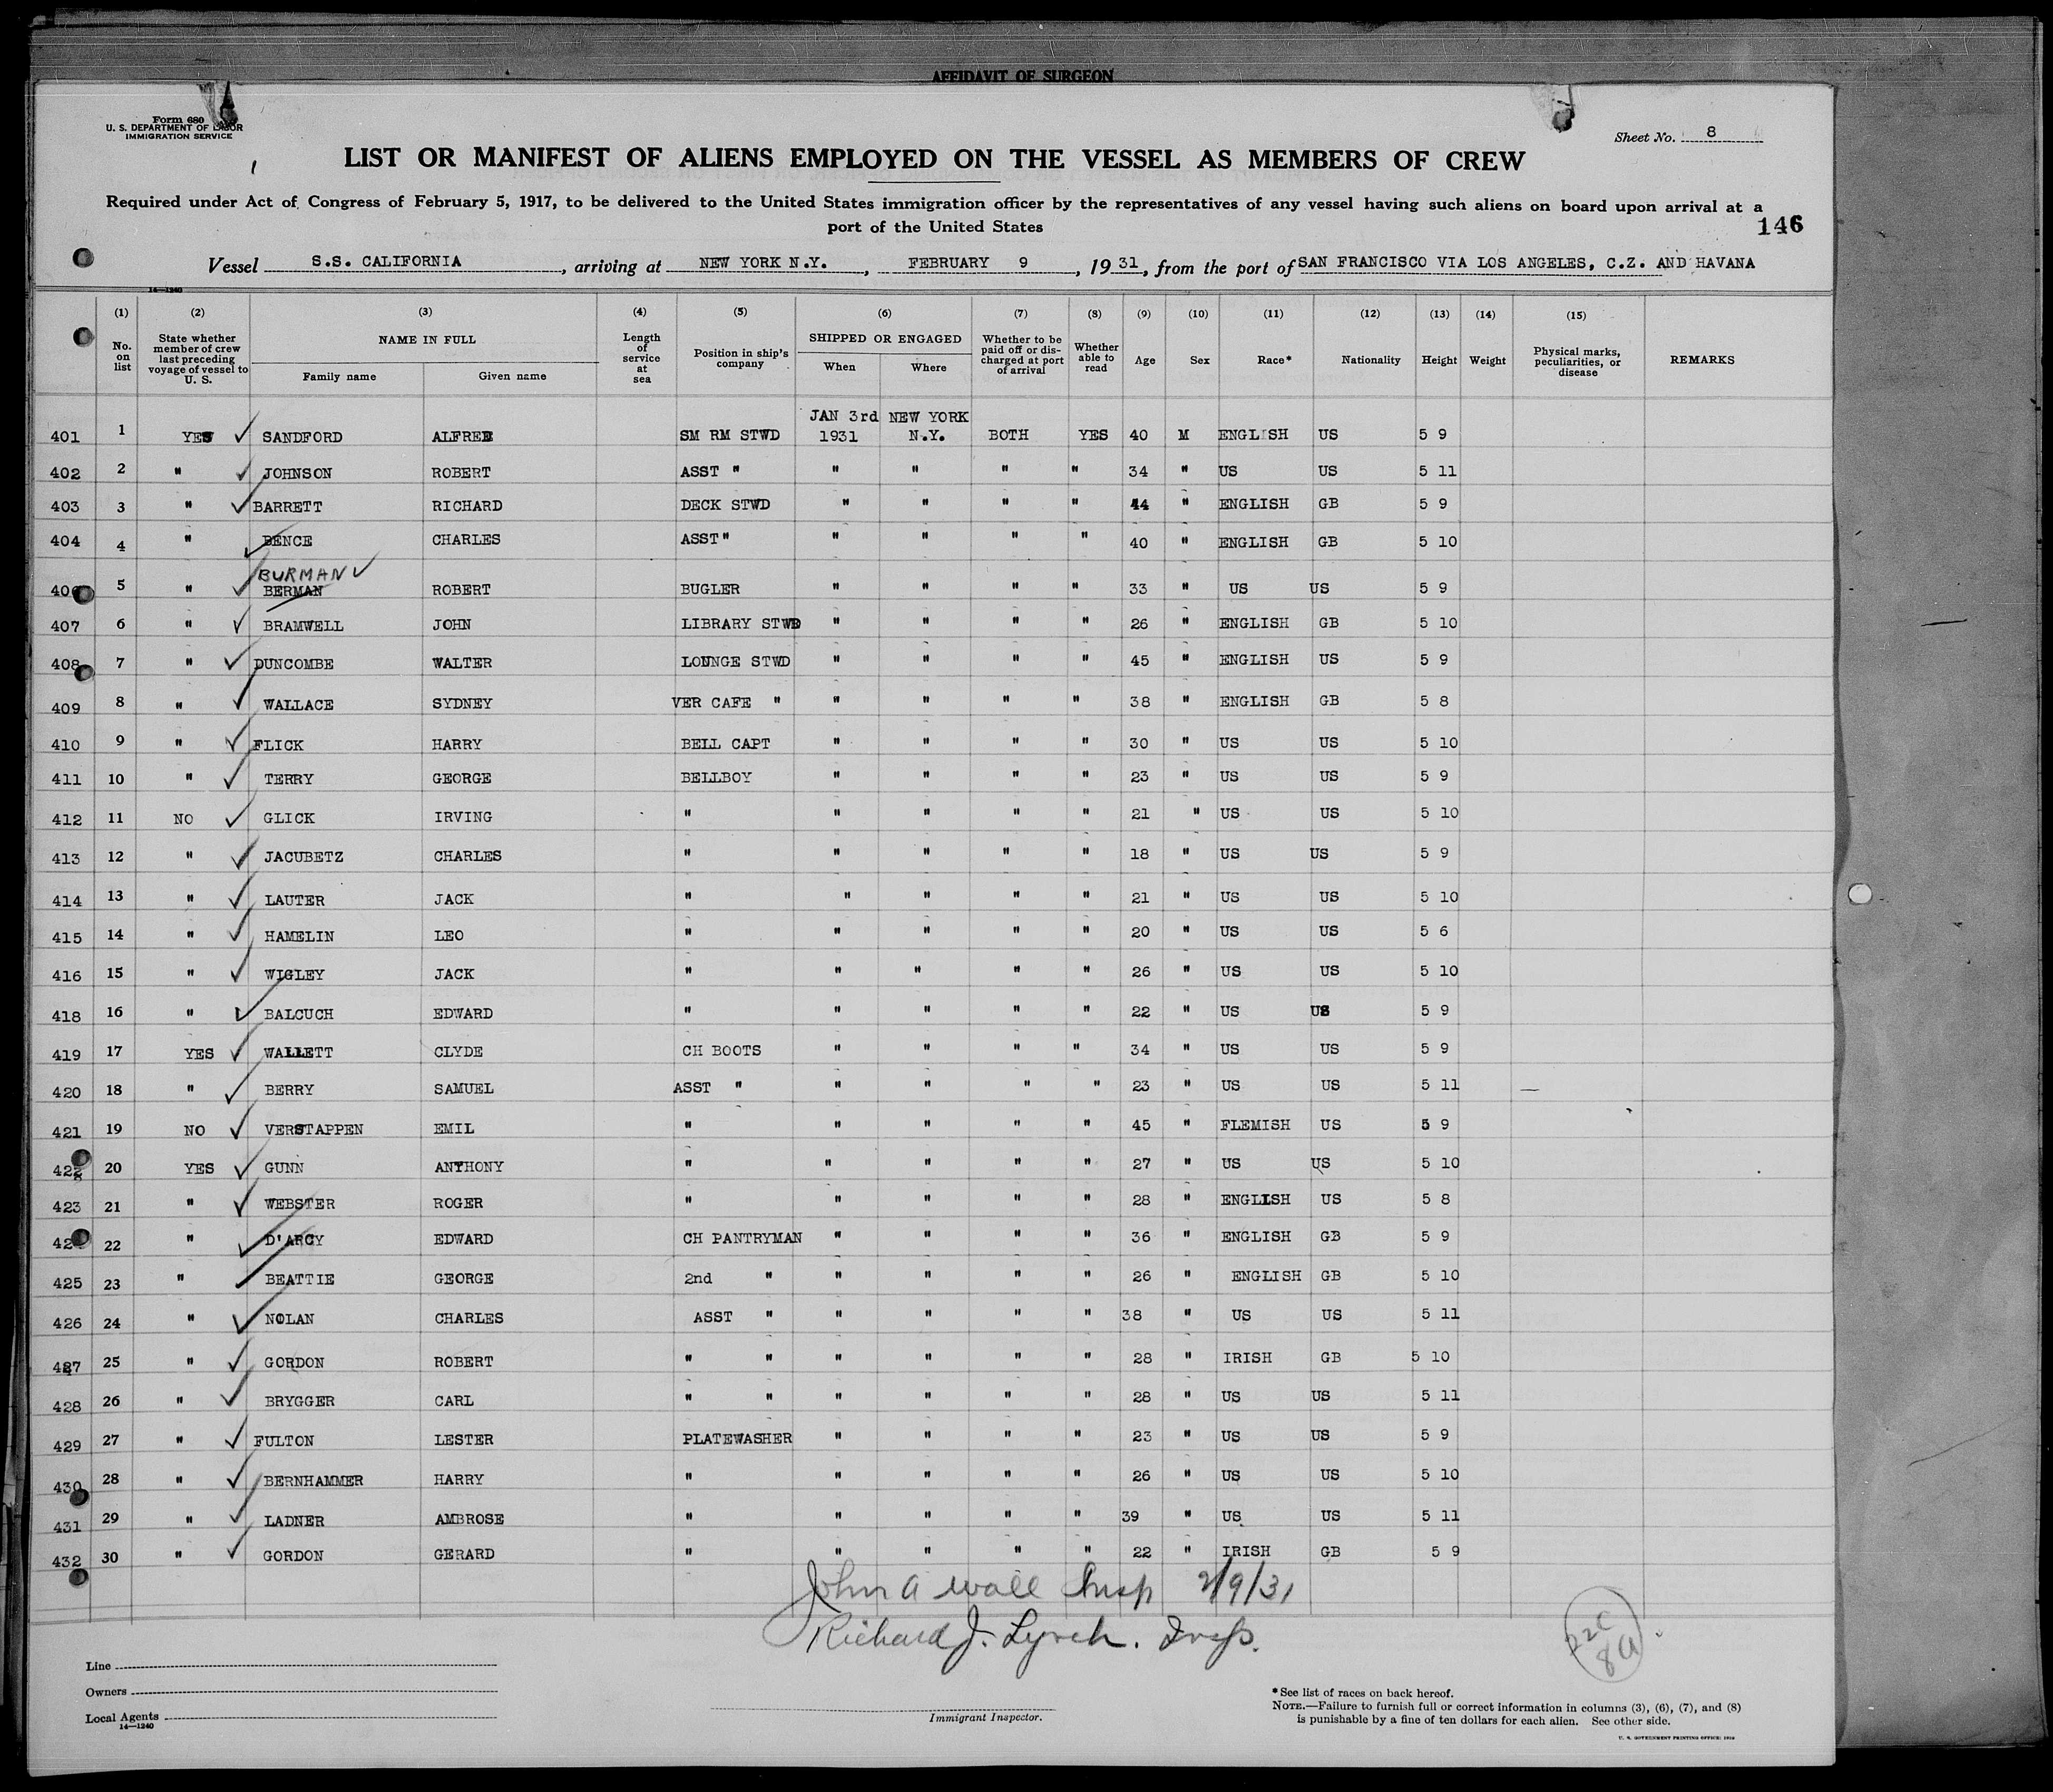 AFFIDAVIT OF SURGEON
Form 680
U. S. DEPARTMENT OF LABOR
IMMIGRATION SERVICE
Sheet No. 8
LIST OR MANIFEST OF ALIENS EMPLOYED ON THE VESSEL AS MEMBERS OF CREW
Required under Act of Congress of February 5, 1917, to be delivered to the United States immigration officer by the representatives of any vessel having such aliens on board upon arrival at a
port of the United States
146
Vessel S.S. CALIFORNIA, arriving at NEW YORK N.Y., FEBRUARY 9, 1931, from the port of SAN FRANCISCO VIA LOS ANGELES, C.Z. AND HAVANA
14—1240
(1) (2) (3) (4) (5) (6) (7) (8) (9) (10) (11) (12) (13) (14) (15)
No. on list State whether member of crew last preceding voyage of vessel to U. S. NAME IN FULL Family name Given name Length of service at sea Position in ship's company SHIPPED OR ENGAGED When Where Whether to be paid off or discharged at port of arrival Whether able to read Age Sex Race* Nationality Height Weight Physical marks, peculiarities, or disease REMARKS
JAN 3rd NEW YORK
401 1 YES ✓ SANDFORD ALFRED SM RM STWD 1931 N.Y. BOTH YES 40 M ENGLISH US 5 9
402 2 " ✓ JOHNSON ROBERT ASST " " " " " 34 " US US 5 11
403 3 " ✓ BARRETT RICHARD DECK STWD " " " " 44 " ENGLISH GB 5 9
404 4 " ✓ BENCE CHARLES ASST " " " " " 40 " ENGLISH GB 5 10
BURMAN ✓
406 5 " ✓ BERMAN ROBERT BUGLER " " " " 33 " US US 5 9
407 6 " ✓ BRAMWELL JOHN LIBRARY STWD " " " " 26 " ENGLISH GB 5 10
408 7 " ✓ DUNCOMBE WALTER LOUNGE STWD " " " " 45 " ENGLISH US 5 9
409 8 " ✓ WALLACE SYDNEY VER CAFE " " " " " 38 " ENGLISH GB 5 8
410 9 " ✓ FLICK HARRY BELL CAPT " " " " 30 " US US 5 10
411 10 " ✓ TERRY GEORGE BELLBOY " " " " 23 " US US 5 9
412 11 NO ✓ GLICK IRVING " " " " " 21 " US US 5 10
413 12 " ✓ JACUBETZ CHARLES " " " " " 18 " US US 5 9
414 13 " ✓ LAUTER JACK " " " " " 21 " US US 5 10
415 14 " ✓ HAMELIN LEO " " " " " 20 " US US 5 6
416 15 " ✓ WIGLEY JACK " " " " " 26 " US US 5 10
418 16 " ✓ BALCUCH EDWARD " " " " " 22 " US US 5 9
419 17 YES ✓ WALLETT CLYDE CH BOOTS " " " " 34 " US US 5 9
420 18 " ✓ BERRY SAMUEL ASST " " " " " 23 " US US 5 11
421 19 NO ✓ VERSTAPPEN EMIL " " " " " 45 " FLEMISH US 5 9
422 20 YES ✓ GUNN ANTHONY " " " " " 27 " US US 5 10
423 21 " ✓ WEBSTER ROGER " " " " " 28 " ENGLISH US 5 8
22 " ✓ D'ARCY EDWARD CH PANTRYMAN " " " " 36 " ENGLISH GB 5 9
425 23 " ✓ BEATTIE GEORGE 2nd " " " " " 26 " ENGLISH GB 5 10
426 24 " ✓ NOLAN CHARLES ASST " " " " " 38 " US US 5 11
427 25 " ✓ GORDON ROBERT " " " " " " 28 " IRISH GB 5 10
428 26 " ✓ BRYGGER CARL " " " " " " 28 " US US 5 11
429 27 " ✓ FULTON LESTER PLATEWASHER " " " " 23 " US US 5 9
430 28 " ✓ BERNHAMMER HARRY " " " " " 26 " US US 5 10
431 29 " ✓ LADNER AMBROSE " " " " " 39 " US US 5 11
432 30 " ✓ GORDON GERARD " " " " " 22 " IRISH GB 5 9
John A Wall Insp 2/9/31
Richard J. Lynch. Insp.
22C
8a
Line
Owners
Local Agents
14—1240
Immigrant Inspector.
*See list of races on back hereof.
NOTE.—Failure to furnish full or correct information in columns (3), (6), (7), and (8)
is punishable by a fine of ten dollars for each alien. See other side.
U. S. GOVERNMENT PRINTING OFFICE: